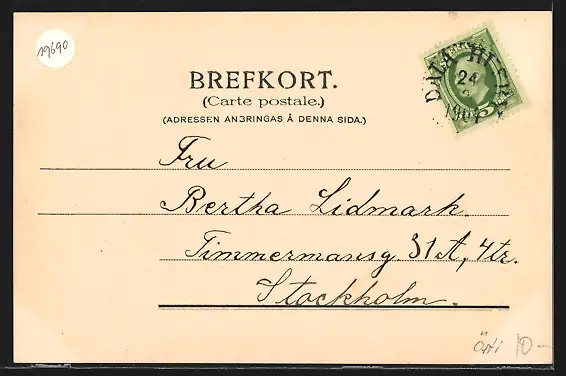 19690
BREFKORT.
(Carte postale.)
(ADRESSEN ANBRINGAS Å DENNA SIDA.)
24
Fru
Bertha Lidmark.
Timmermansg. 31 A, 4 tr.
Stockholm.
10-